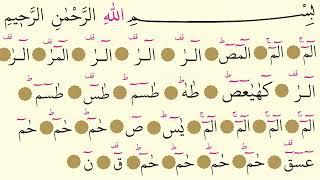 بِسْمِ اللهِ الرَّحْمٰنِ الرَّحِيْمِ
الٓمّٓ ۚ الٓمّٓ ۚ الٓمّٓصٓ ۚ الٓرٰ الٓرٰ الٓرٰ الٓمّٓرٰ الٓرٰ
الٓرٰ كٓهٰيٰعٓصٓ طٰهٰ طٰسٓمّٓ طٰسٓ طٰسٓمّٓ
الٓمّٓ الٓمّٓ الٓمّٓ الٓمّٓ يٰسٓ صٓ حٰمٓ حٰمٓ حٰمٓ
عٓسٓقٓ حٰمٓ حٰمٓ حٰمٓ حٰمٓ قٓ نٓ